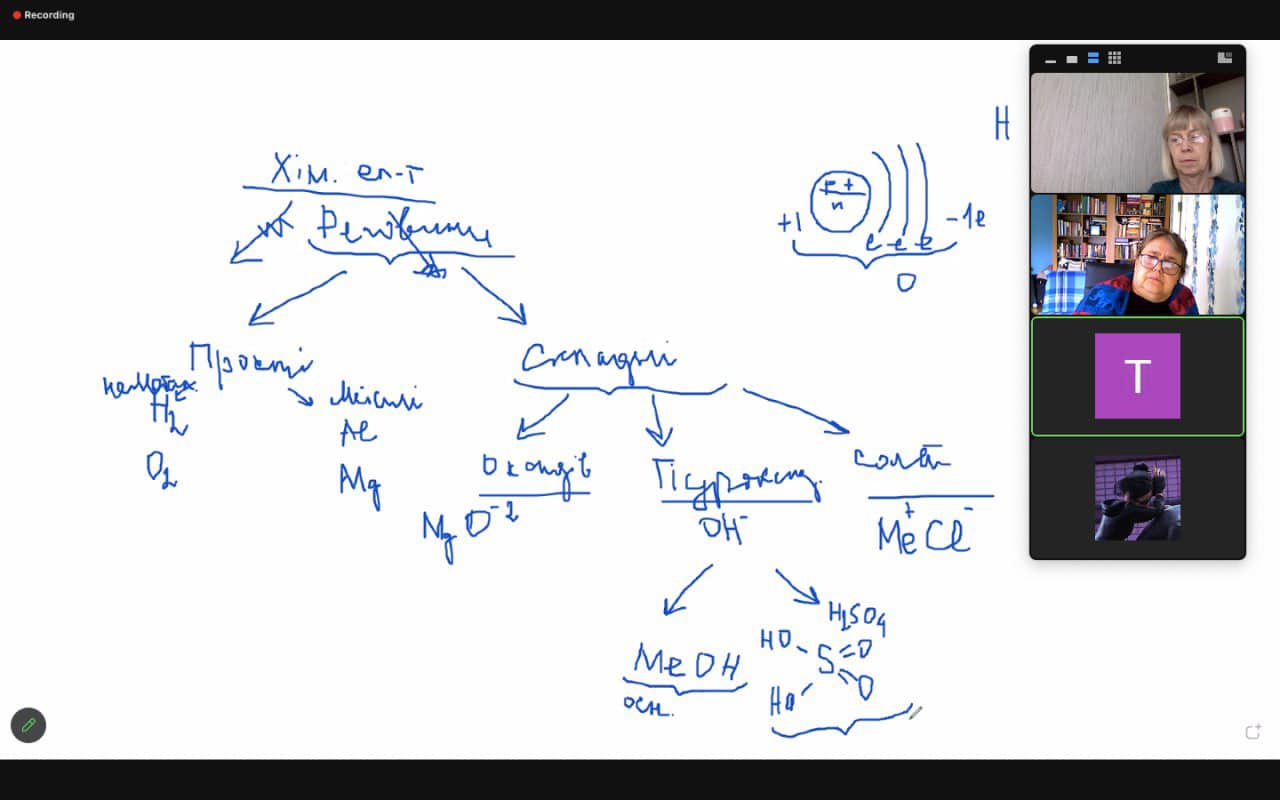 Recording
H
Хім. ел-т
Речовини
p+
n
+1
e- e- e
-1e
0
Прості
Складні
неметал.
H2
O2
Метали
Al
Mg
Оксиди
MgO-2
Гідроксид.
OH-
солі
Me+Cl-
MeOH
осн.
H2SO4
HO
S
=O
O
HO
T